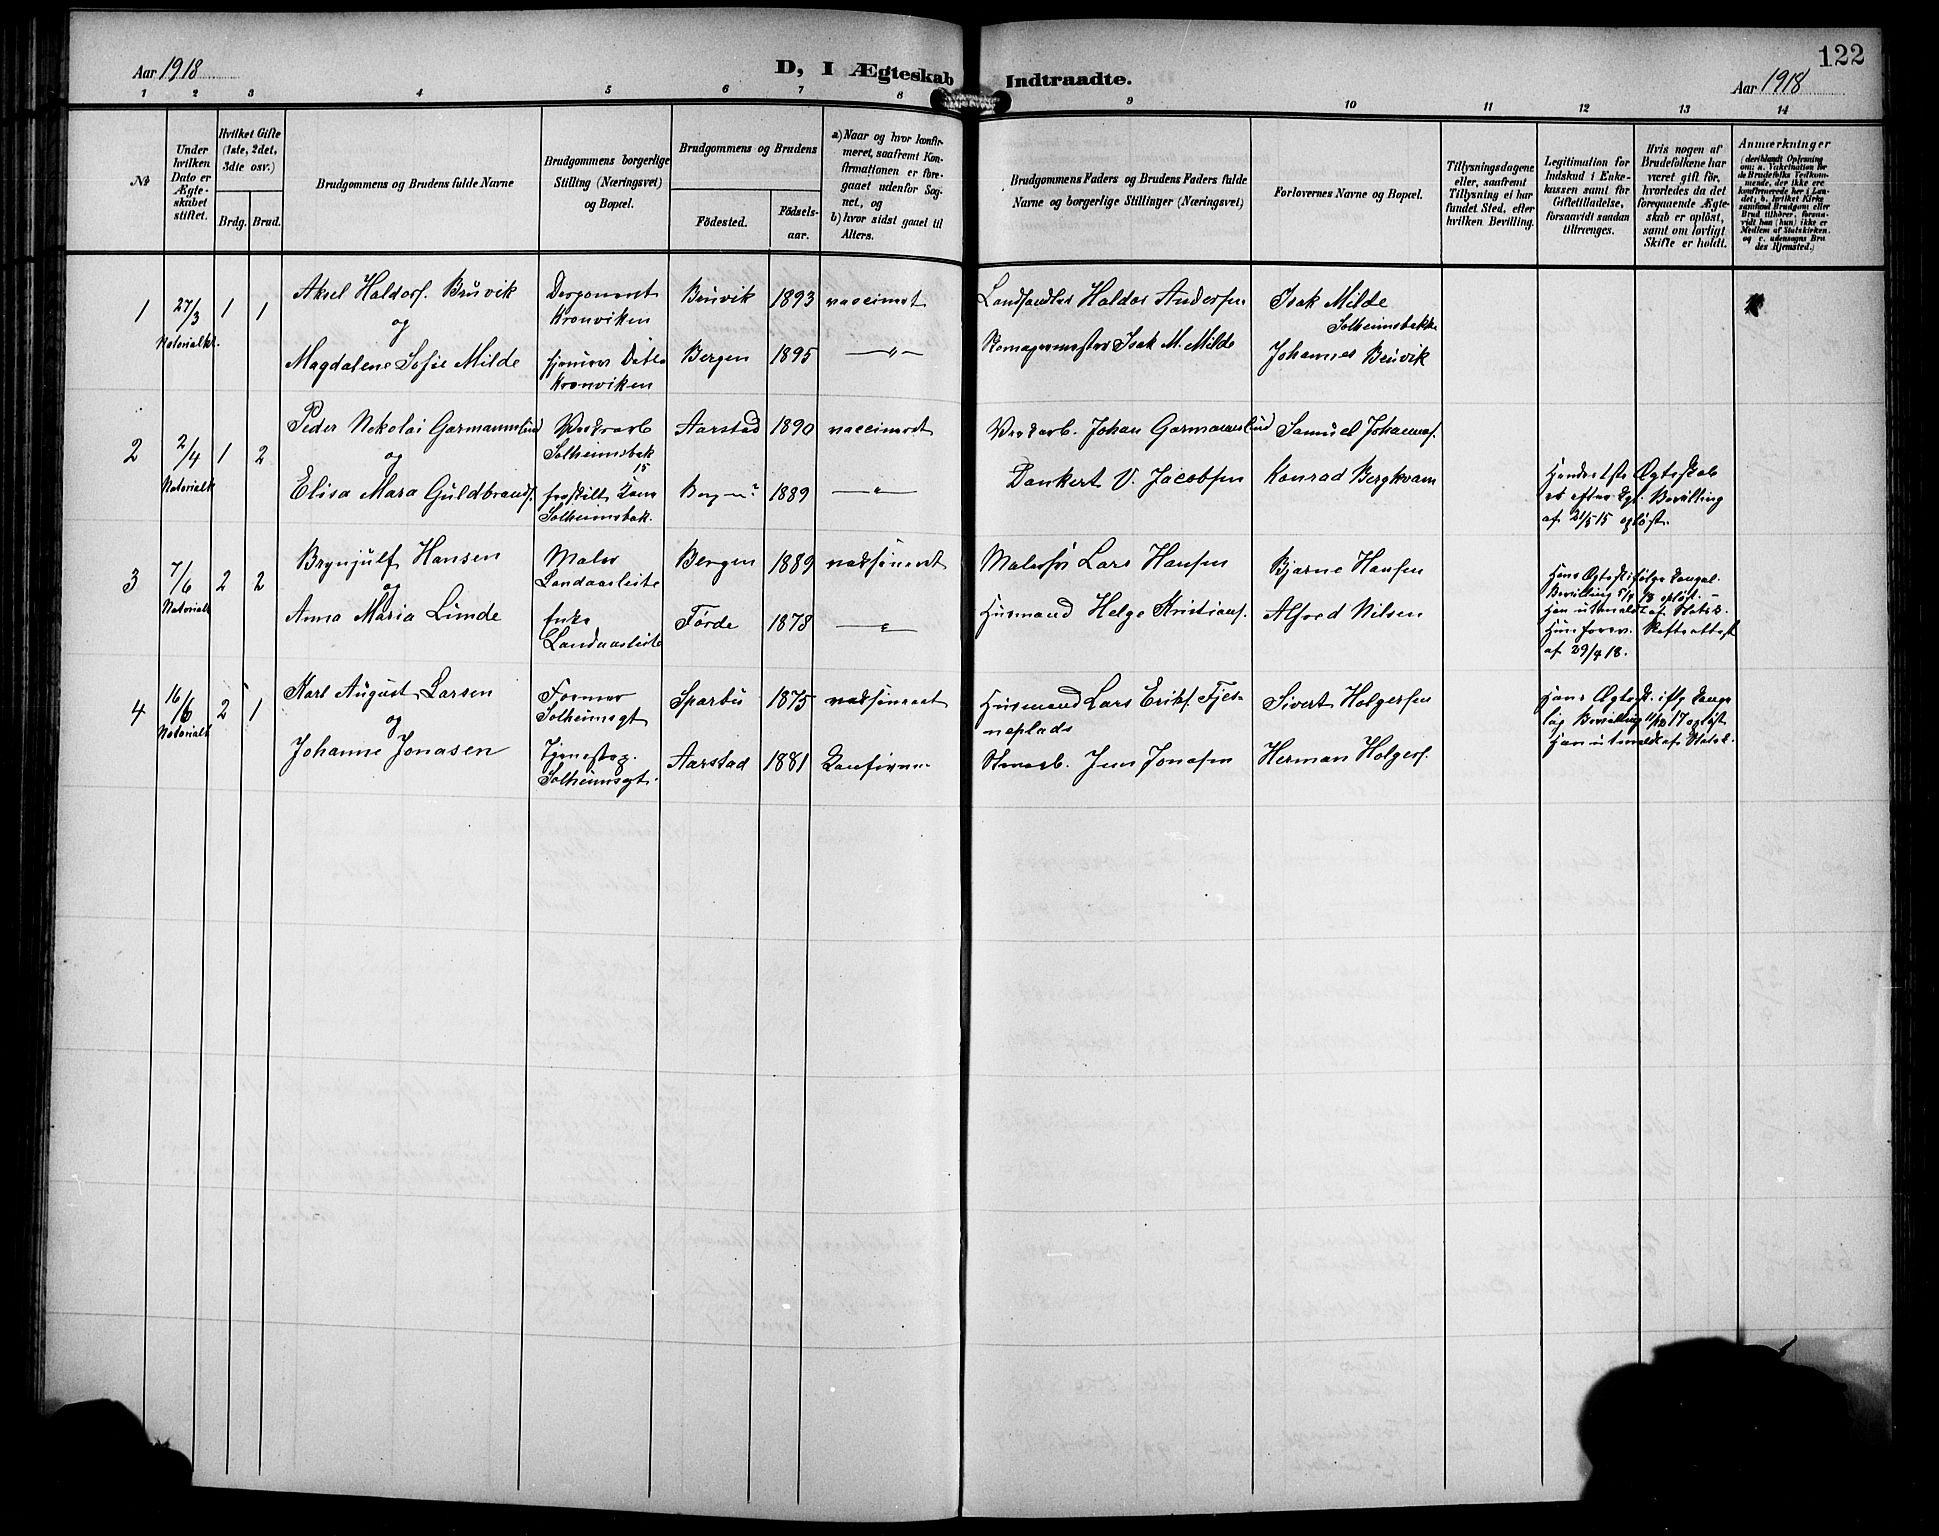 122
Aar 1918
D, I Ægteskab Indtraadte.
Aar 1918
1 2 3 4 5 6 7 8 9 10 11 12 13 14
No
Under hvilken Dato er Ægteskabet stiftet.
Hvilket Gifte (1ste, 2det, 3die osv.)
Brdg. Brud.
Brudgommens og Brudens fulde Navne
Brudgommens borgerlige Stilling (Næringsvei) og Bopæl.
Brudgommens og Brudens
Fødested.
Fødselsaar.
a) Naar og hvor konfirmeret, saafremt Konfirmationen er foregaaet udenfor Sognet, og
b) hvor sidst gaaet til Alters.
Brudgommens Faders og Brudens Faders fulde Navne og borgerlige Stillinger (Næringsvei)
Forlovernes Navne og Bopæl.
Tillysningsdagene eller, saafremt Tillysning ei har fundet Sted, efter hvilken Bevilling.
Legitimation for Indskud i Enkekassen samt for Giftetilladelse, forsaavidt saadan tiltrænges.
Hvis nogen af Brudefolkene har været gift før, hvorledes da det foregaaende Ægteskab er opløst, samt om lovligt Skifte er holdt.
Anmærkninger
(deriblandt Oplysning om: a. Vakcination for de Brudefolks Vedkommende, der ikke ere konfirmerede her i Landet, b. hvilket Kirkesamfund Brudgom eller Brud tilhører, forsaavidt han (hun) ikke er Medlem af Statskirken, og c. udensogns Brudes Hjemsted.)
1 27/3 Notorialkt. 1 1
Aksel Haldorf. Bruvik
og
Magdalene Sofie Milde
Disponent
Kronviken
hjemmev. Datter
Kronviken
Bruvik 1893 vaccineret
Bergen 1895 —"—
Landhandler Haldor Andersen
Isak M. Milde
Isak Milde
Solheimsbakke
Johannes Bruvik
2 2/4 Notorialk 1 2
Peder Nikolai Garmannslund
og
Elisa Mara Guldbrands.
Verkarb
Solheimsbak
15
fraskilt Kone
Solheimsbak.
Aarstad 1890 vaccineret
Bergen 1889 —"—
Verkarb. Johan Garmannslund
Dankert V. Jacobsen
Samuel Johannes.
Konrad Bergkvam
Hendes 1ste Ægteskab
er efter kgl. Bevilling
af 21/5 15 opløst.
3 7/6 Notorialk 2 2
Brynjulf Hansen
og
Anna Maria Lunde
Maler
Landaasleite
Enke
Landaasleite
Bergen 1889 vaksineret
Førde 1878 —"—
Malersv Lars Hansen
Husmand Helge Kristians.
Bjarne Hansen
Alfred Nilsen
Hans Ægtesk ifølge kongel.
Bevilling 5/4 18 opløst. –
Han utmeldt af Statsk.
Hun forev. Skifteattest
af 29/4 18.
4 16/6 Notorialk 2 1
Karl August Larsen
og
Johanne Jonasen
Former
Solheimsgt
Tjenestep.
Solheimsgt.
Sparbu 1875 vaksineret
Aarstad 1881 Konfirm
Husmand Lars Eriks. Tjesneplads
Stenarb. Jens Jonasen
Sivert Holgersen
Herman Holgers.
Hans Ægtesk. iflg Kongelig Bevilling 11/10 17 opløst
Han utmeldt af Statsk.